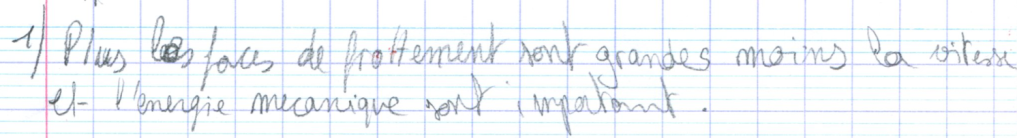 1) Plus les forces de frottement sont grandes moins la vitesse
et l'énergie mecanique sont important.